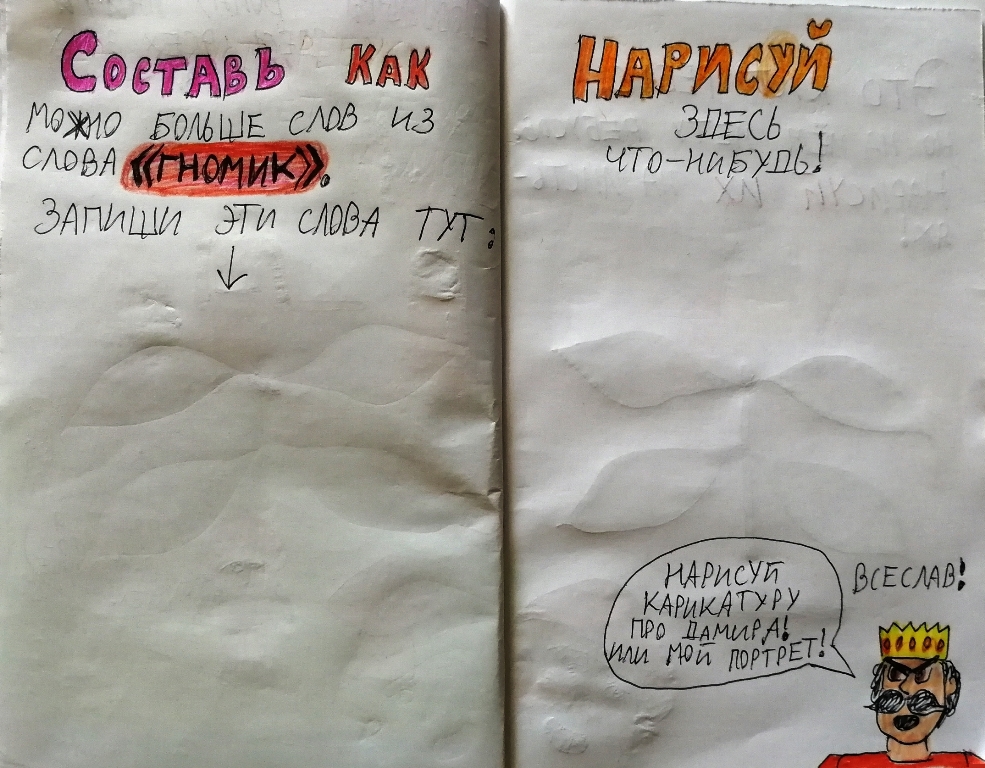 СОСТАВЬ КАК
МОЖНО БОЛЬШЕ СЛОВ ИЗ
СЛОВА «ГНОМИК».
ЗАПИШИ ЭТИ СЛОВА ТУТ:
НАРИСУЙ
ЗДЕСЬ
ЧТО-НИБУДЬ!
НАРИСУЙ
КАРИКАТУРУ
ПРО ДАМИРА!
ИЛИ МОЙ ПОРТРЕТ!
ВСЕСЛАВ!